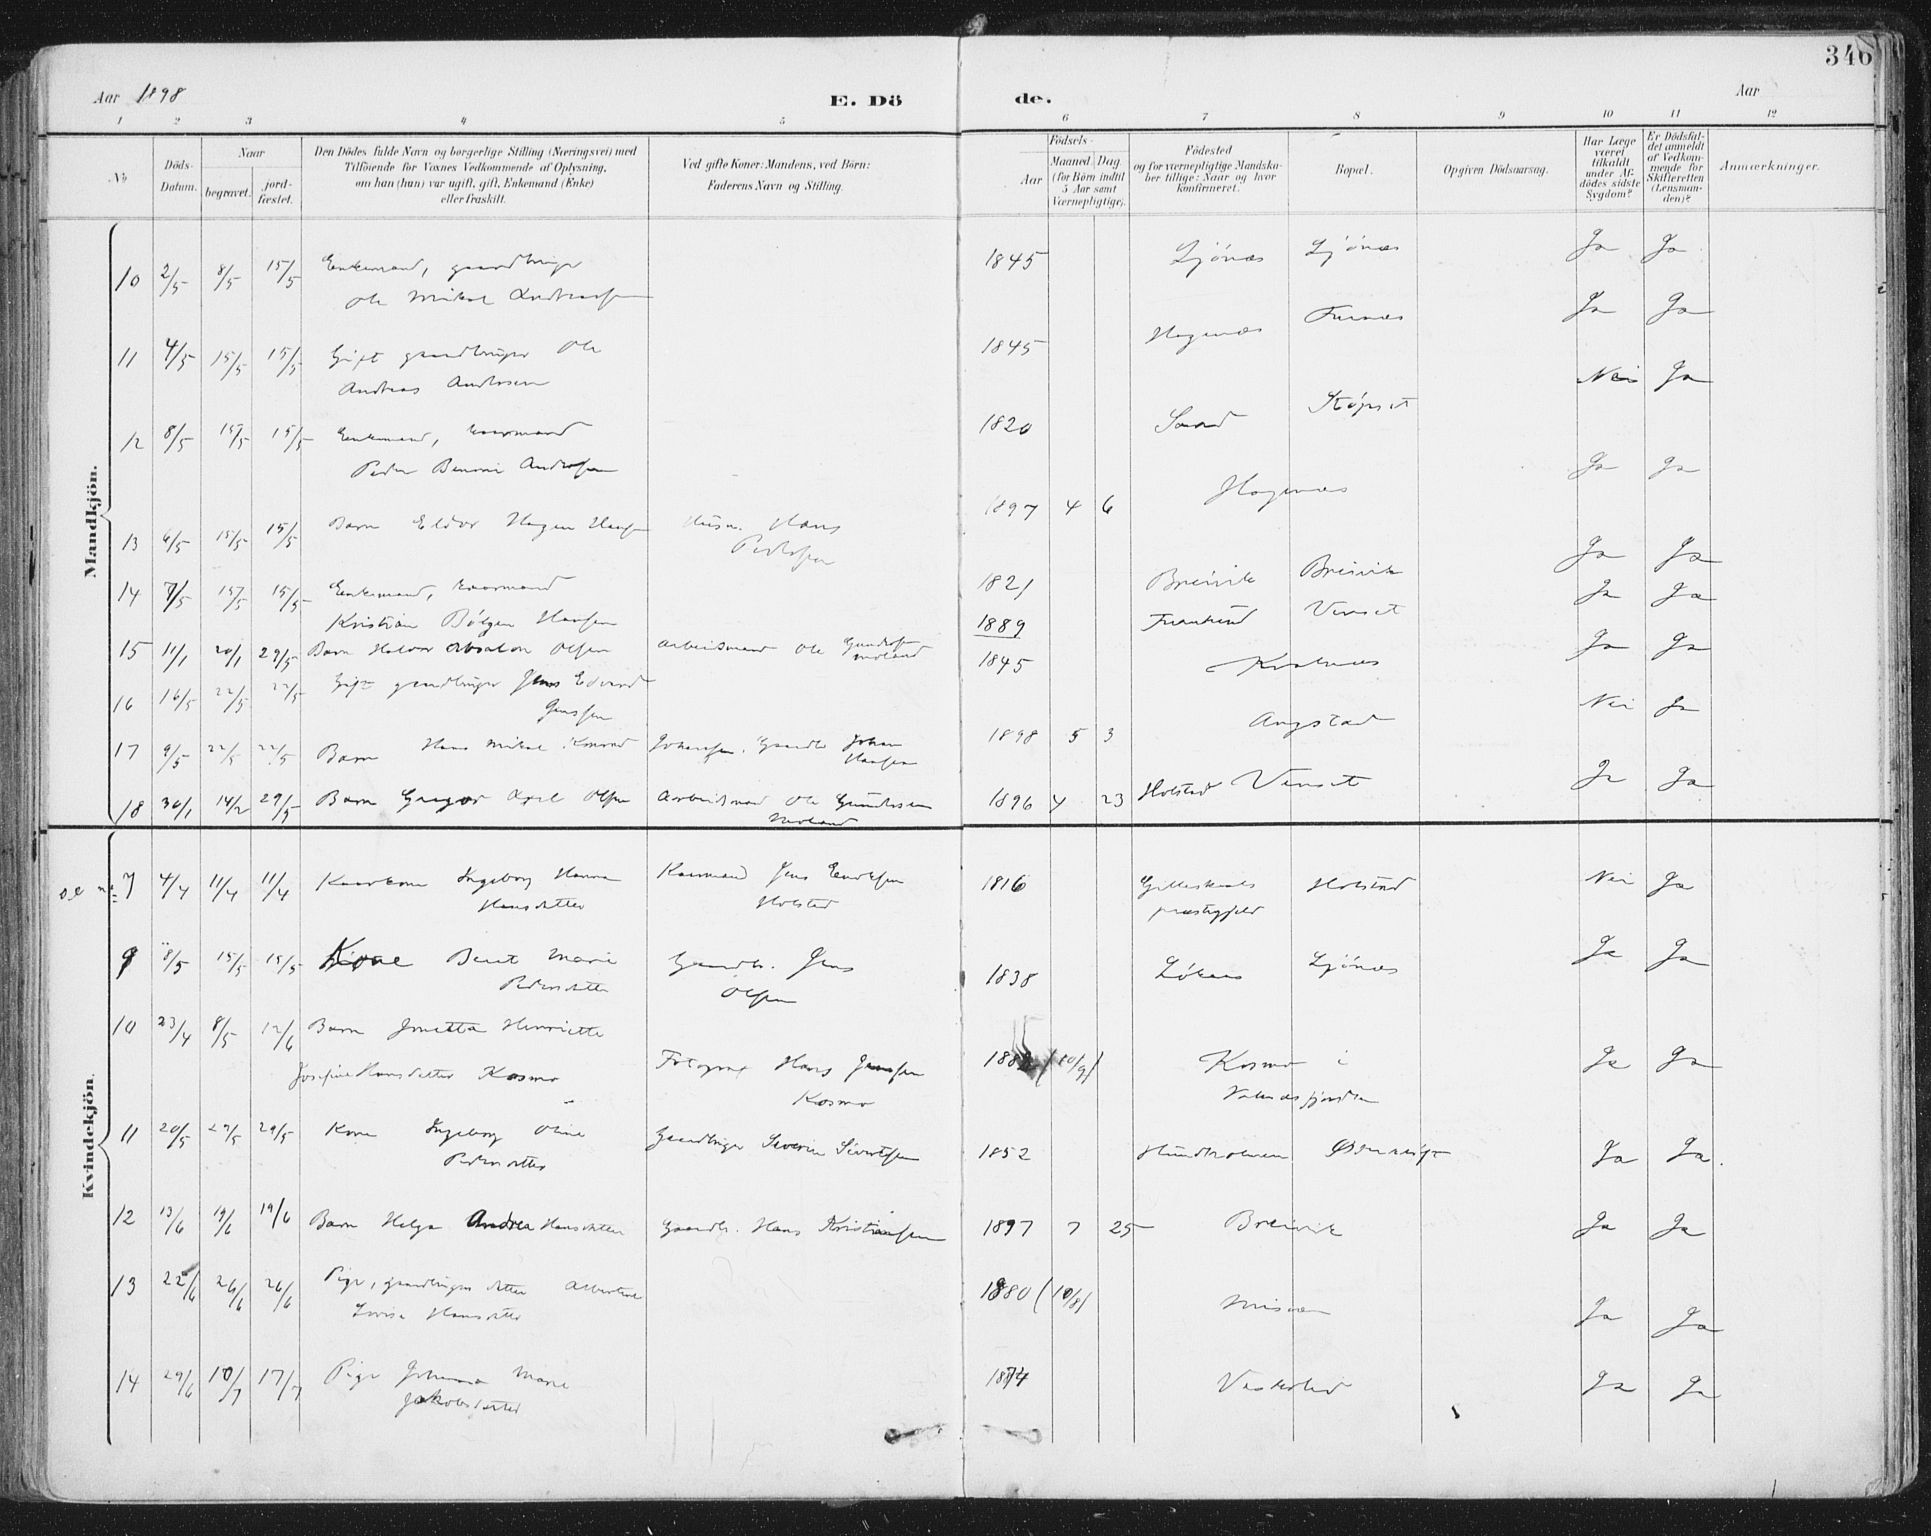 346
Aar 1898
E. Döde.
Aar
1 2 3 4 5 6 7 8 9 10 11 12
No
Döds-Datum.
Naar
begravet.
jordfæstet.
Den Dödes fulde Navn og borgerlige Stilling (Næringsvei) med
Tilföiende for Voxnes Vedkommende af Oplysning,
om han (hun) var ugift, gift, Enkemand (Enke)
eller fraskilt.
Ved gifte Koner: Mandens, ved Börn:
Faderens Navn og Stilling.
Födsels-
Aar
Maaned Dag
(for Börn indtil
5 Aar samt
Værnepligtige).
Födested
og for værnepligtige Mandska-
ber tillige: Naar og hvor
konfirmeret.
Bopæl.
Opgiven Dödsaarsag.
Har Læge
været
tilkaldt
under Af-
dödes sidste
Sygdom?
Er Dödsfal-
det anmeldt
af Vedkom-
mende for
Skifteretten
(Lensman-
den)?
Anmærkninger.
Mandkjön.
10 2/5 8/5 15/5 Enkemand, gaardbruger 1845 Ljönæs Ljönæs Ja Ja
Ole Mikal Andreassen
11 4/5 15/5 15/5 Gift gaardbruger Ole 1845 Hagenæs Furnes Ja Ja
Andreas Andersen
12 8/5 15/5 15/5 Enkemand, kaarmand 1820 Sand Nei Ja
Peder Benoni Andersen
13 6/5 15/5 15/5 Barn Eldor Hagen Hansen Husm. Hans 1897 4 6 Hagenæs Ja Ja
Pedersen
14 7/5 15/5 15/5 Enkemand, kaarmand 1821 Breivik Breivik Ja Ja
Kristian Bölgen Hansen
15 11/1 20/1 29/5 Barn Halvor Absalon Olsen Arbeidsmand Ole Gundersen 1889 Venset Ja Ja
Moland
16 16/5 22/5 22/5 Gift gaardbruger Jens Edvard 1845 Kvalnæs Ja Ja
Jenssen
17 9/5 22/5 22/5 Barn Hans Mikal Konrad Johansen. Gaardb. Johan 1898 5 3 Angstad Nei Ja
Hansen
18 30/1 14/2 29/5 Barn Gregor Axel Olsen Arbeidsmand Ole Gundersen 1896 4 23 Holstad Venset Ja Ja
Moland
Kvindekjön.
7 4/4 11/4 11/4 Kaarkone Ingeborg Hanna Kaarmand Jens Enoksen 1816 Gilleskaals Holstad Nei Ja
Hansdatter Holstad præstegjeld
9 8/5 15/5 15/5 Kone Beret Marie Gaardb. Jens 1838 Lökaas Ljönæs Ja Ja
Pedersdatter Olsen
10 23/4 8/5 12/6 Barn Jonetta Henriette
Josefine Hansdatter Kosmo Fotograf Hans Jenssen (10/9) Kosmo i Ja Ja
Kosmo Valnesfjorden
11 20/5 29/5 29/5 Kone Ingeborg Oline Gaardbruger Severin Sivertsen 1852 Hundholmen Ja Ja.
Pedersdatter
12 13/6 19/6 19/6 Barn Helga Andrea Hansdatter Gaardb. Hans Kristiansen 1897 7 25 Breivik Ja Ja
13 22/6 26/6 26/6 Pige, gaardbruger datter Albertine 1880 (10/8) Misvær Ja Ja
Lovisa Hansdatter
14 29/6 10/7 17/7 Pige Johanna Marie 1874 Ja Ja
Jakobsdatter